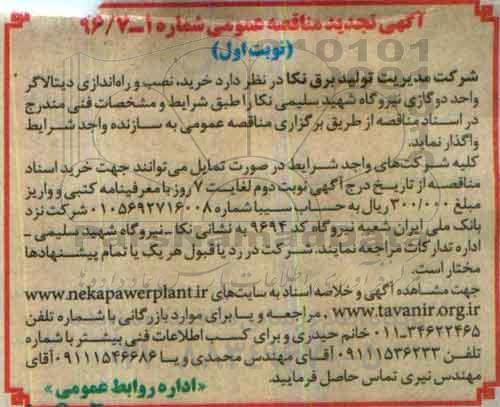 آگهی تجدید مناقصه عمومی شماره ۱-۹۶/۷
(نوبت اول)
شرکت مدیریت تولید برق نکا در نظر دارد خرید، نصب و راه‌اندازی دیتالاگر
واحد دو گازی نیروگاه شهید سلیمی نکا را طبق شرایط و مشخصات فنی مندرج
در اسناد مناقصه از طریق برگزاری مناقصه عمومی به سازنده واجد شرایط
واگذار نماید.
کلیه شرکت‌های واجد شرایط در صورت تمایل می‌توانند جهت خرید اسناد
مناقصه از تاریخ درج آگهی نوبت دوم لغایت ۷ روز با معرفینامه کتبی و واریز
مبلغ ۳۰۰/۰۰۰ ریال به حساب سیبا شماره ۰۱۰۵۶۹۲۷۱۶۰۰۸ شرکت نزد
بانک ملی ایران شعبه نیروگاه کد ۹۶۹۴ به نشانی نکا - نیروگاه شهید سلیمی -
اداره تدارکات مراجعه نمایند. شرکت در رد یا قبول هر یک یا تمام پیشنهادها
مختار است.
جهت مشاهده آگهی و خلاصه اسناد به سایت‌های www.nekapawerplant.ir
www.tavanir.org.ir ، مراجعه و یا برای موارد بازرگانی با شماره تلفن
۰۱۱-۳۴۶۲۲۴۶۵ خانم حیدری و برای کسب اطلاعات فنی بیشتر با شماره
تلفن ۰۹۱۱۱۵۳۶۲۳۳ آقای مهندس محمدی و یا ۰۹۱۱۱۵۴۶۶۸۶ آقای
مهندس نیری تماس حاصل فرمایید.
«اداره روابط عمومی»